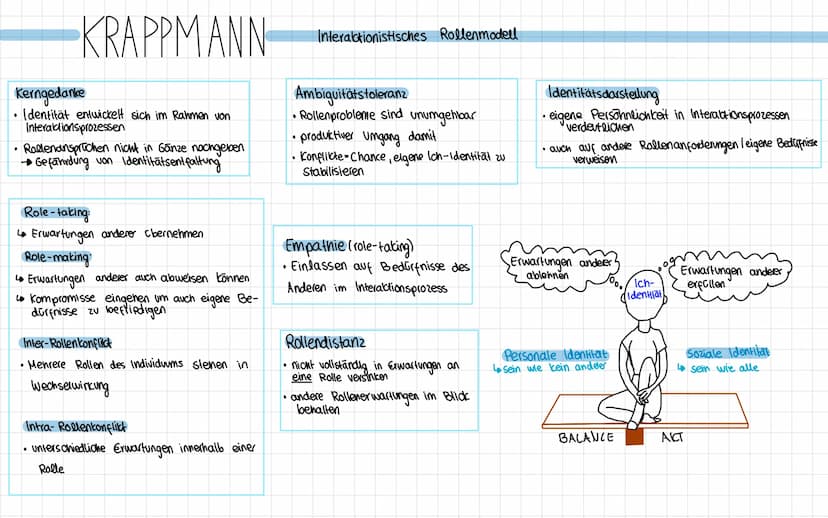 KRAPPMANN
Interaktionistisches Rollenmodell
Kerngedanke
• Identität entwickelt sich im Rahmen von
Interaktionsprozessen
• Rollenansprüchen nicht in Gänze nachgeben
→ Gefährdung von Identitätsentfaltung
Ambiguitätstoleranz
• Rollenprobleme sind unumgehbar
• produktiver Umgang damit
• Konflikte = Chance, eigene Ich-Identität zu
stabilisieren
Identitätsdarstellung
• eigene Persönlichkeit in Interaktionsprozessen
verdeutlichen
• auch auf andere Rollenanforderungen / eigene Bedürfnisse
verweisen
Role-taking:
↳ Erwartungen anderer übernehmen
Role-making:
↳ Erwartungen anderer auch abweisen können
↳ Kompromisse eingehen um auch eigene Be-
dürfnisse zu befriedigen
Inter-Rollenkonflikt
• Mehrere Rollen des Individuums stehen in
Wechselwirkung
Intra-Rollenkonflikt
• unterschiedliche Erwartungen innerhalb einer
Rolle
Empathie (role-taking)
• Einlassen auf Bedürfnisse des
Anderen im Interaktionsprozess
Rollendistanz
• nicht vollständig in Erwartungen an
eine Rolle versinken
• andere Rollenerwartungen im Blick
behalten
Erwartungen anderer
ablehnen
Erwartungen anderer
erfüllen
Ich-
Identität
Personale Identität
↳ sein wie kein anderer
Soziale Identität
↳ sein wie alle
BALANCE AKT